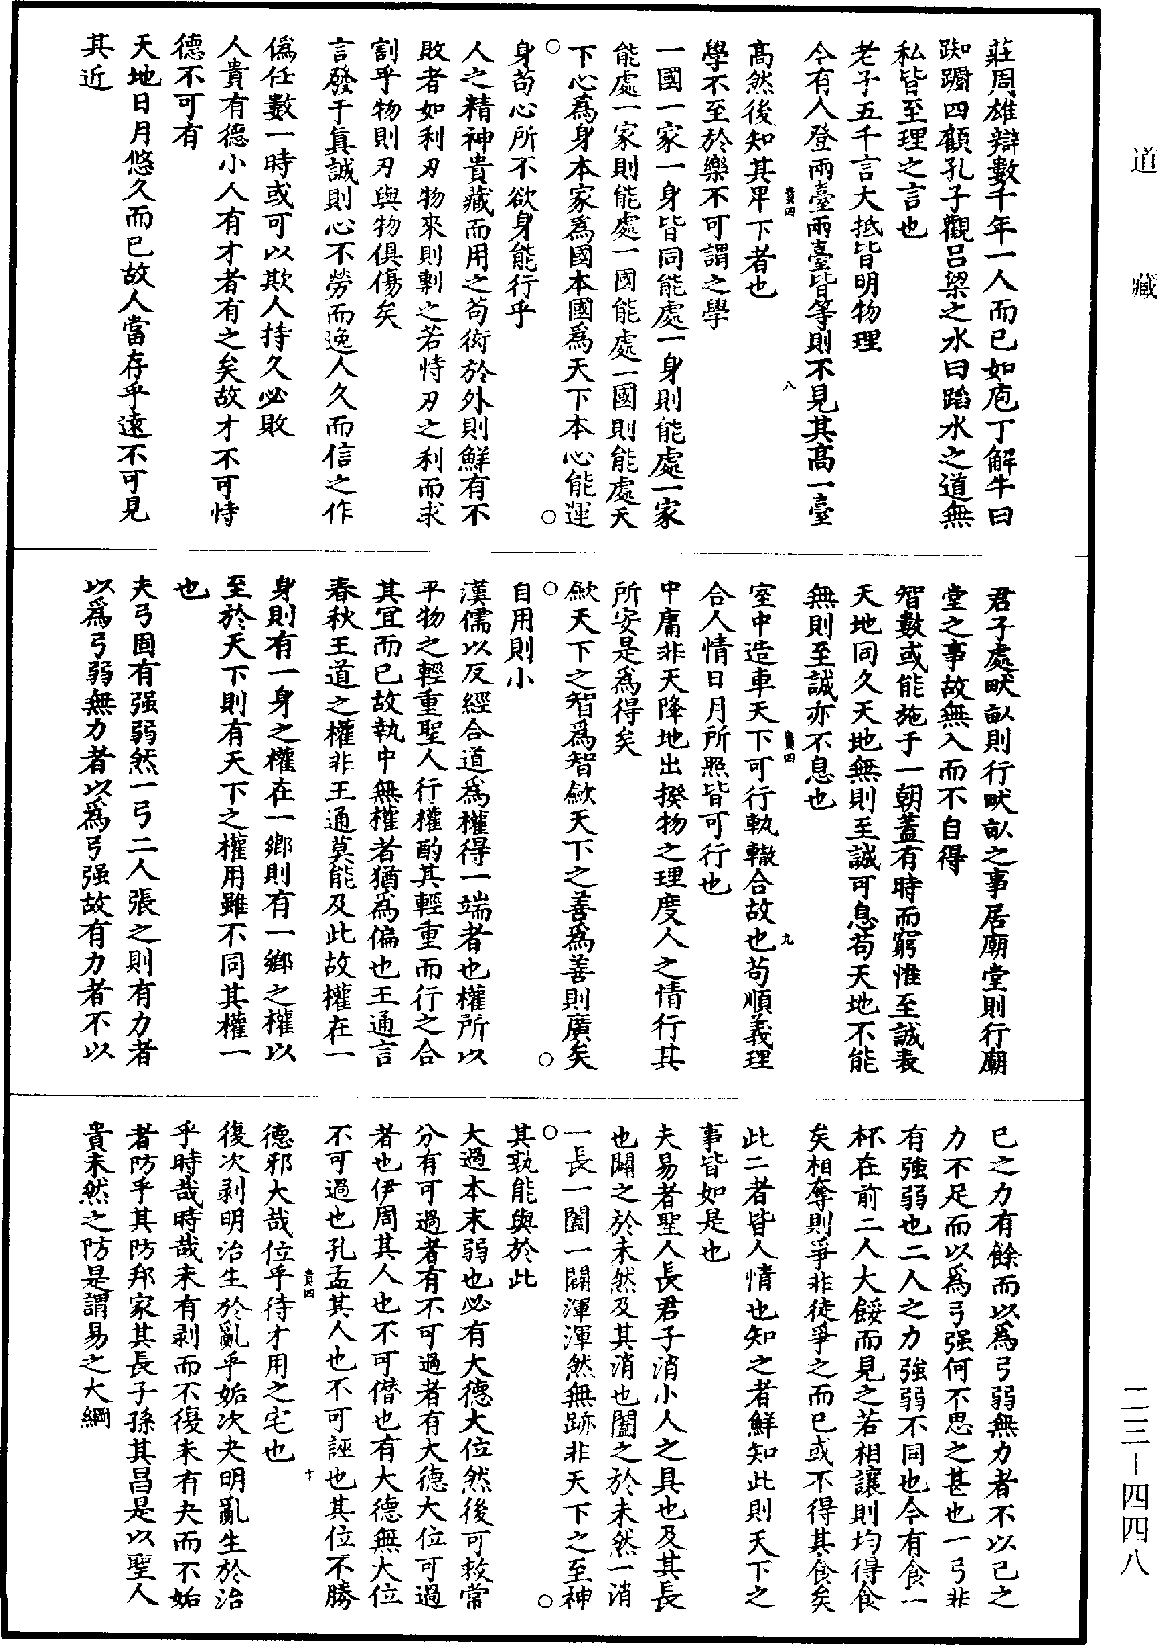 道藏
莊周雄辯數千年一人而已如庖丁解牛曰
踟躕四顧孔子觀呂梁之水曰蹈水之道無
私皆至理之言也
老子五千言大抵皆明物理
今有人登兩臺兩臺皆等則不見其高一臺
貴四
八
高然後知其卑下者也
學不至於樂不可謂之學
一國一家一身皆同能處一身則能處一家
能處一家則能處一國能處一國則能處天
下心為身本家為國本國為天下本心能運
○
○
身苟心所不欲身能行乎
人之精神貴藏而用之苟衒於外則鮮有不
敗者如利刃物來則剸之若恃刃之利而求
割乎物則刃與物俱傷矣
言發于真誠則心不勞而逸人久而信之作
偽任數一時或可以欺人持久必敗
人貴有德小人有才者有之矣故才不可恃
德不可有
天地日月悠久而已故人當存乎遠不可見
其近
君子處畎畝則行畎畝之事居廟堂則行廟
堂之事故無入而不自得
智數或能施于一朝蓋有時而窮惟至誠與
天地同久天地無則至誠可息苟天地不能
無則至誠亦不息也
貴四
九
室中造車天下可行軌轍合故也苟順義理
合人情日月所照皆可行也
中庸非天降地出揆物之理度人之情行其
所安是為得矣
歛天下之智為智歛天下之善為善則廣矣
○
○
自用則小
漢儒以反經合道為權得一端者也權所以
平物之輕重聖人行權酌其輕重而行之合
其宜而已故執中無權者猶為偏也王通言
春秋王道之權非王通莫能及此故權在一
身則有一身之權在一鄉則有一鄉之權以
至於天下則有天下之權用雖不同其權一
也
夫弓固有强弱然一弓二人張之則有力者
以為弓弱無力者以為弓强故有力者不以
已之力有餘而以為弓弱無力者不以己之
力不足而以為弓强何不思之甚也一弓非
有強弱也二人之力強弱不同也今有食一
杯在前二人大餒而見之若相讓則均得食
矣相奪則爭非徒爭之而已或不得其食矣
此二者皆人情也知之者鮮知此則天下之
事皆如是也
夫易者聖人長君子消小人之具也及其長
也闢之於未然及其消也闔之於未然一消
一長一闔一闢渾渾然無跡非天下之至神
○
○
其孰能與於此
大過本末弱也必有大德大位然後可救常
分有可過者有不可過者有大德大位可過
者也伊周其人也不可僭也有大德無大位
不可過也孔孟其人也不可誣也其位不勝
貴四
十
德邪大哉位乎待才用之宅也
復次剥明治生於亂乎姤次夬明亂生於治
乎時哉時哉未有剥而不復未有夬而不姤
者防乎其防邦家其長子孫其昌是以聖人
貴未然之防是謂易之大綱
二三—四四八